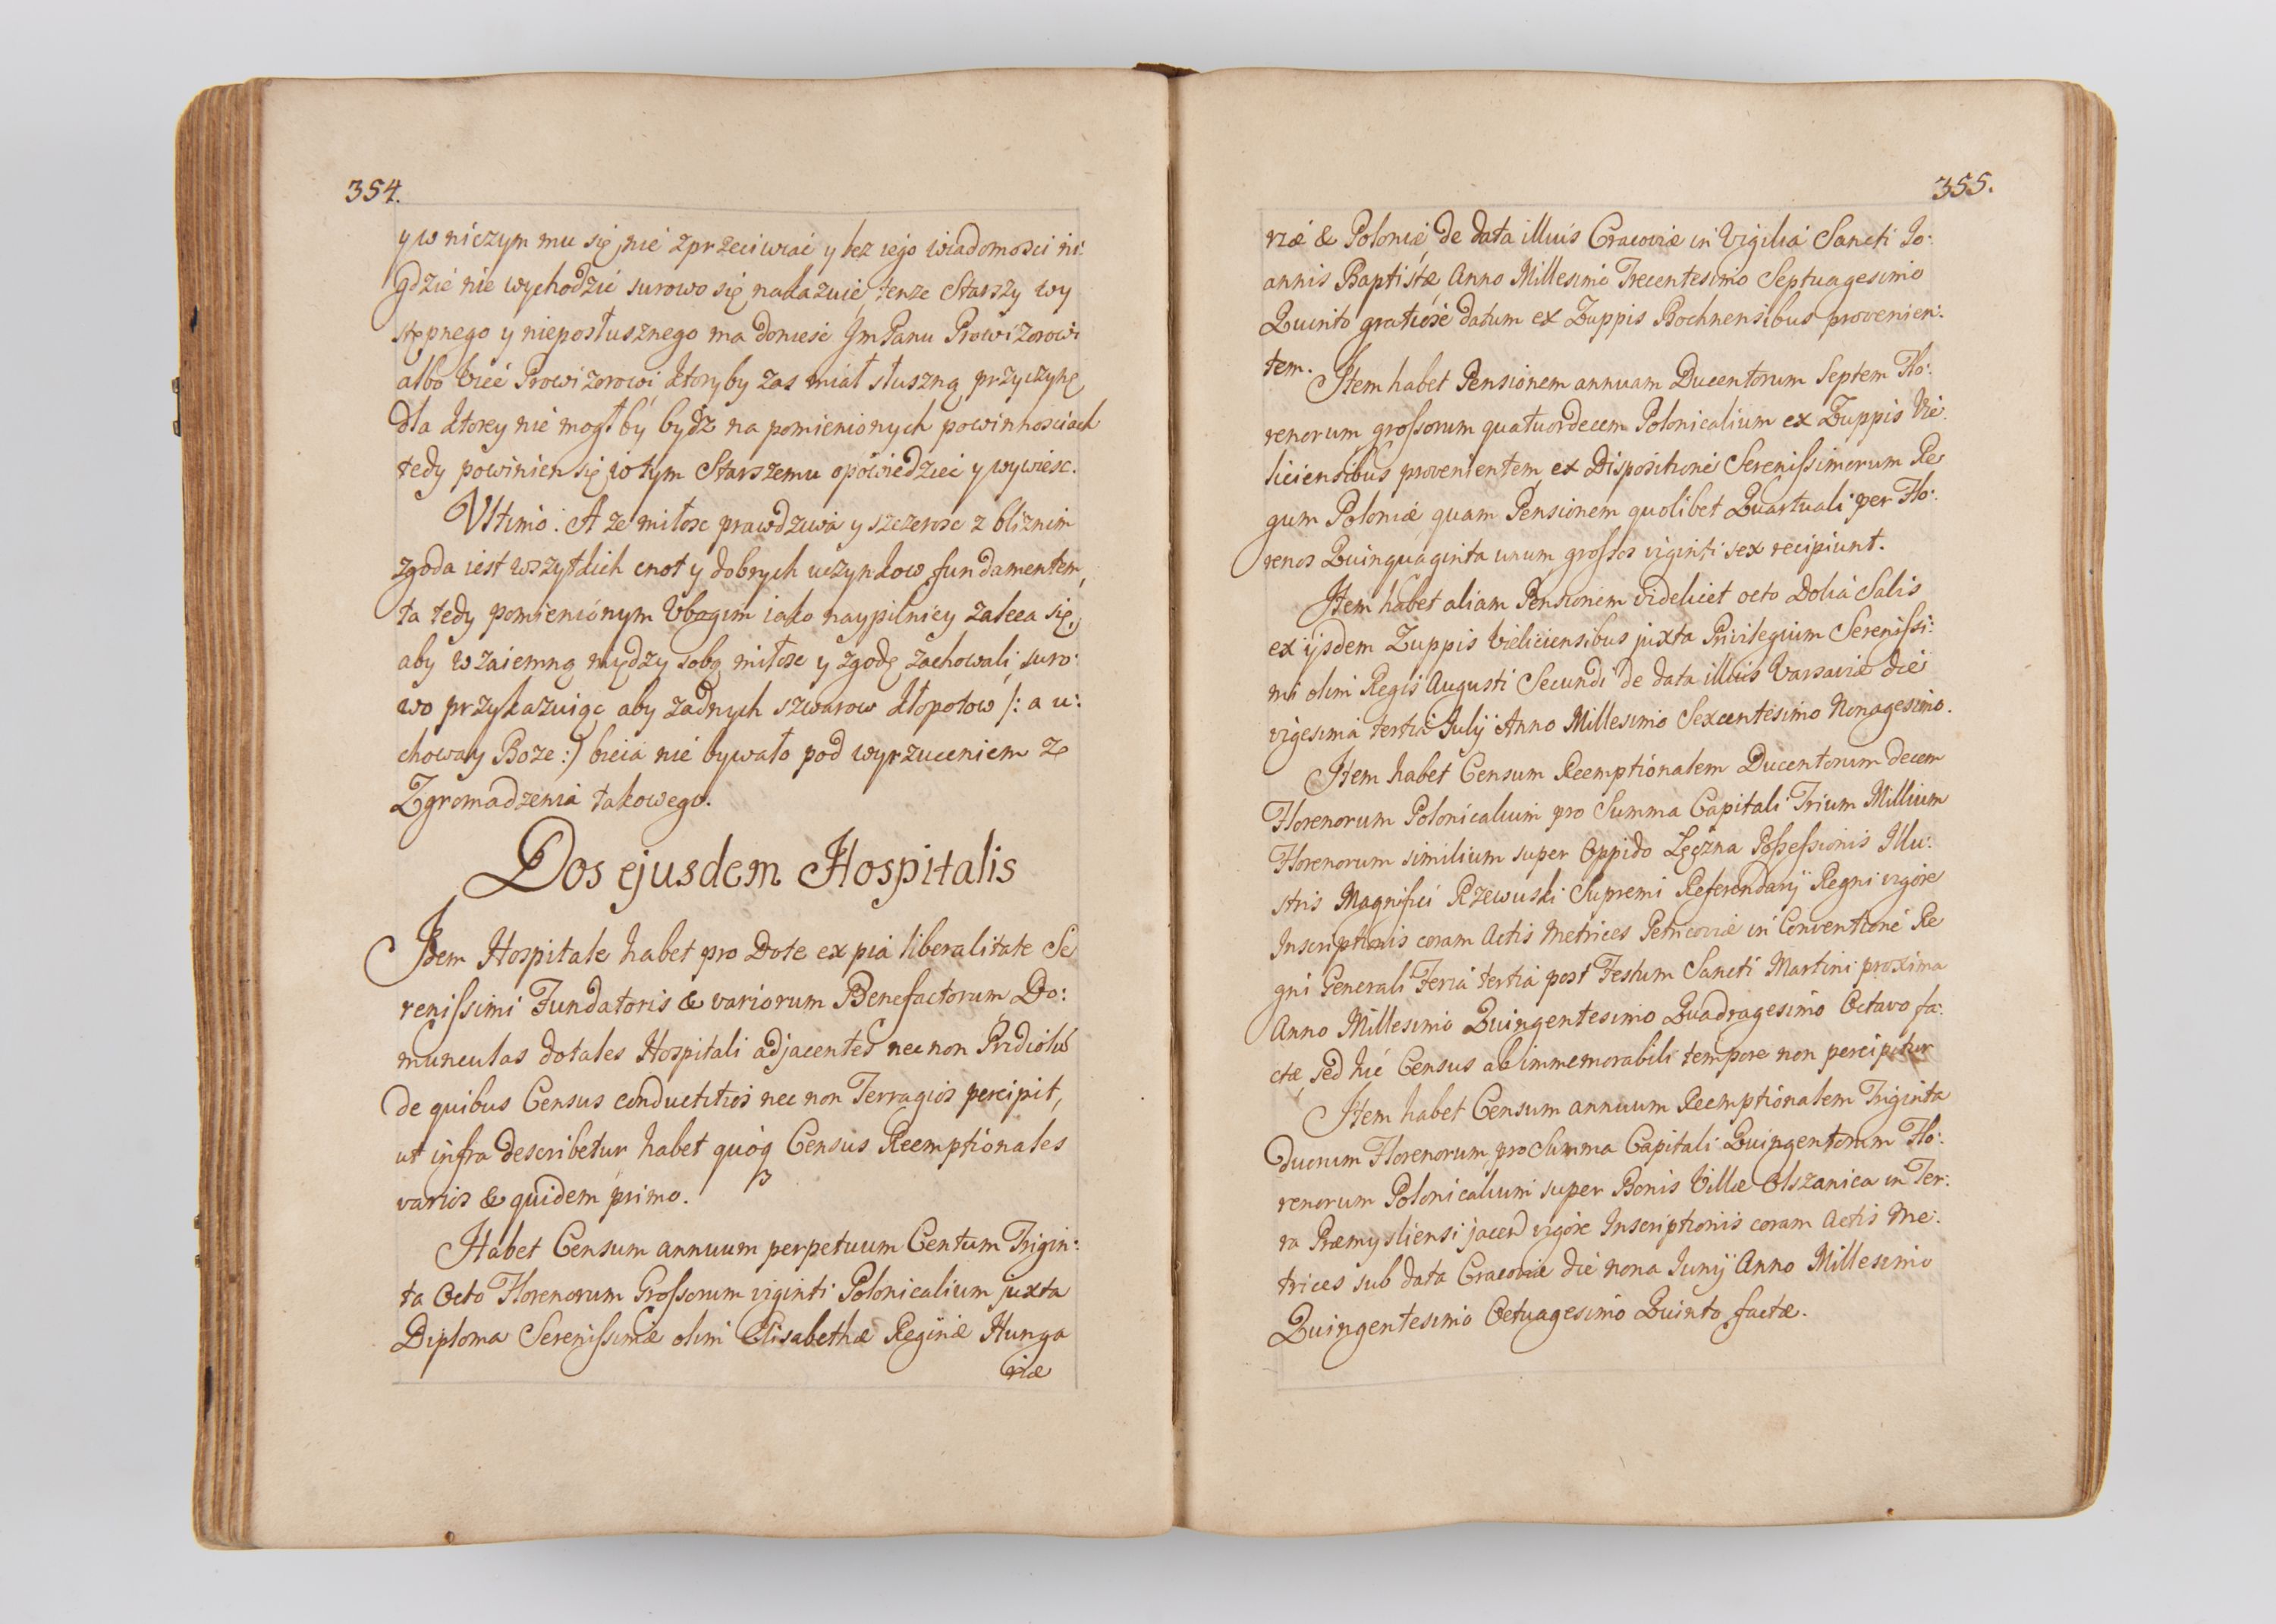 354.
y w niczym mu się nie zprzeciwiać y bez iego wiadomosci ni:
gdzie nie wychodzić surowo się nakazuie, tenze Starszy wy
stępnego y nieposłusznego ma doniesć Jm Panu Prowizorowi
albo Vice Prowizorowi, ktoryby zas miał słuszną przyczynę
dla ktorey nie mogł by bydz na pomienionych powinnosciach
tedy powinien się w tym Starszemu opowiedzieć y wywiesc.
Vltimo. A ze miłosc prawdziwa y szczerosc z bliznim
zgoda iest wszytkich cnot y dobrych uczynkow fundamentem,
ta tedy pomienionym Vbogim iako naypilniey zaleca się,
aby wzaiemną między sobą miłosc y zgodę zachowali, suro:
wo przykazuiąc aby zadnych szwarow kłopotow /: a u:
choway Boze :/ bicia nie bywało pod wyrzuceniem z
Zgromadzenia takowego.
Dos ejusdem Hospitalis
Idem Hospitale habet pro Dote ex pia liberalitate Se
renissimi Fundatoris & variorum Benefactorum Do:
munculas dotales Hospitali adjacentes nec non Prædiolũ
de quibus Census conductitios nec non Terragios percipit,
ut infra describetur habet quóq Census Reemptionales
varios & quidem primo.
Habet Censum annuum perpetuum Centum Trigin:
ta Octo Florenorum Grossorum viginti Polonicalium juxta
Diploma Serenissimæ olim Elisabethæ Reginæ Hunga
riæ
355.
riæ & Poloniæ de data illius Cracoviæ in Vigilia Sancti Jo:
annis Baptistæ Anno Millesimo Trecentesimo Septuagesimo
Quinto gratiose datum ex Zuppis Bochnensibus provenien:
tem.
Item habet Pensionem annuam Ducentorum Septem Flo:
renorum grossorum quatuordecem Polonicalium ex Zuppis Vie
liciensibus provenientem ex Dispositione Serenissimorum Re
gum Poloniæ quam Pensionem quolibet Quartuali per Flo:
renos Quinquaginta unum grossos viginti sex recipiunt.
Item habet aliam Pensionem videlicet octo Dolia Salis
ex ijsdem Zuppis Vieliciensibus juxta Privilegium Serenissi:
mi olim Regis Augusti Secundi de data illius Varsaviæ die
vigesima tertia Julÿ Anno Millesimo Sexcentesimo Nonagesimo.
Item habet Censum Reemptionalem Ducentorum decem
Florenorum Polonicalium pro Summa Capitali Trium Millium
Florenorum similium super Oppido Łęczna Possessionis Illu:
stris Magnifici Rzewuski Supremi Referendarÿ Regni vigore
Inscriptionis coram Actis Metrices Petricoviæ in Conventione Re
gni Generali Feria tertia post Festum Sancti Martini proxima
Anno Millesimo Quingentesimo Quadragesimo Octavo fa:
ctæ, sed hic Census ab immemorabili tempore non percipitur
Item habet Censum annuum Reemptionalem Triginta
duorum Florenorum pro Summa Capitali Quingentorum Flo:
renorum Polonicalium super Bonis Villæ Olszanica in Ter:
ra Præmysliensi jacen vigore Inscriptionis coram Actis Me:
trices sub data Cracoviæ die nona Junÿ Anno Millesimo
Quingentesimo Octuagesimo Quinto factæ.